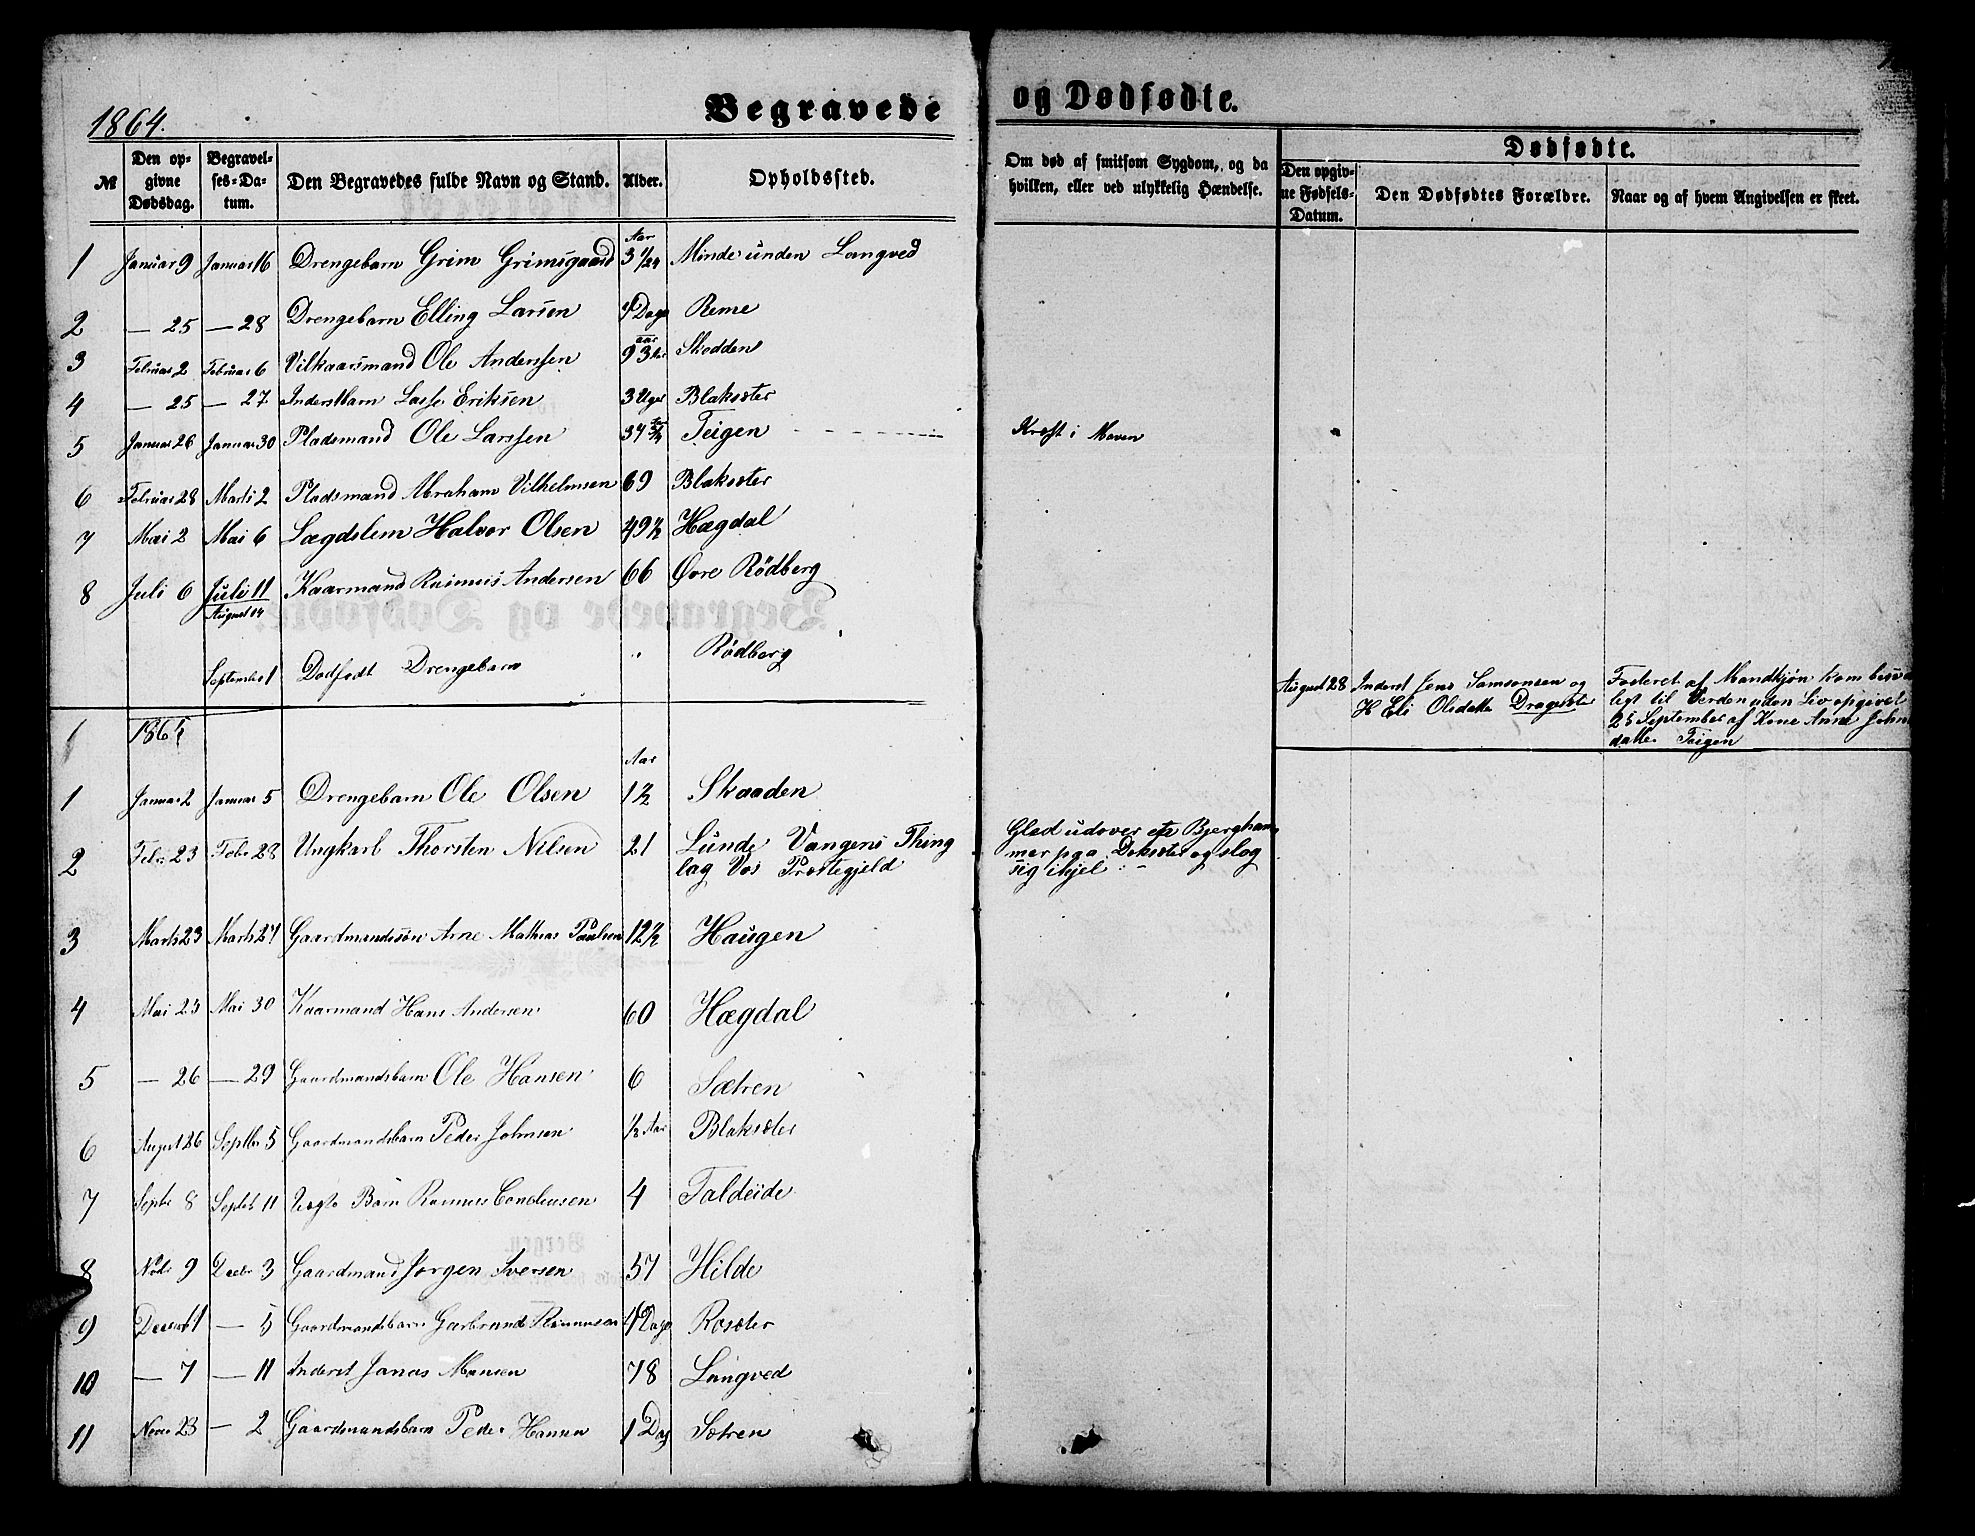 1864.
Begravede og Dødfødte.
№
Den opgivne Dødsdag.
Begravelses-Datum.
Den Begravedes fulde Navn og Stand.
Alder.
Opholdssted.
Om død af smitsom Sygdom, og da hvilken, eller ved ulykkelig Hændelse.
Dødfødte.
Den opgivne Fødsels-Datum.
Den Dødfødtes Forældre.
Naar og af hvem Angivelsen er skeet.
1 Januar 9 Januar 16 Drengebarn Grim Grimsgaard Aar 3 1/24 Minde unden Langved
2 — 25 — 28 Drengebarn Elling Larsen 9 Dage Reme
3 Februar 2 Februar 6 Vilkaarsmand Ole Anderssen 93 Aar Skodden
4 — 25 — 27 Inderstbarn Lasse Eriksen 3 Uger Blaksæter
5 Januar 26 Januar 30 Pladsmand Ole Larssen 34 Teigen Kræft i Maven
6 Februar 28 Marts 2 Pladsmand Abraham Vilhelmsen 69 Blaksæter
7 Mai 2 Mai 6 Lægdslem Halvor Olsen 49 1/2 Hægdal
8 Juli 6 Juli 11 Kaarmand Rasmus Andersen 66 Øvre Rødberg
August 14
September 1 Dødfødt Drengebarn " Rødberg
August 28 Inderst Jens Samsonsen og
H Eli Olsdatte Dragesæt
Fosteret af Mandkjøn kom
test til Verden uden Liv opgivet
25 September af Kone Anne John
datte. Teigen
1865
1 Januar 2 Januar 5 Drengebarn Ole Olsen Aar 1 1/2 Skaaden
2 Febr 23 Febr 28 Ungkarl Thorsten Nilsen 21 Lunde Vangens Thing
lag Vos Præstegjeld
Gled udover et Bjergham
mer paa Doksæter og slog
sig ihjel
3 Marts 23 Marts 27 Gaardmandssøn Arne Mathias Paulsen 12 1/2 Haugen
4 Mai 25 Mai 30 Kaarmand Hans Andersen 60 Hægdal
5 — 26 — 29 Gaardmandsbarn Ole Hansen 6 Sætren
6 August 26 Septbr 5 Gaardmandsbarn Peder Johnsen 1/2 Aar Blaksæter
7 Septbr 8 Septbr 11 Barn Rasmus 4 Faldeide
8 Novbr 9 Decbr 3 Gaardmand Jørgen Iversen 57 Hilde
9 Decembr 1 — 5 Gaardmandsbarn Garbrand Rasmussen Dage Rosæter
10 — 7 — 11 Inderst Jonas Monsen 78 Langved
11 Novbr 23 — 2 Gaardmandsbarn Peder Hansen 1 Dag Sætren